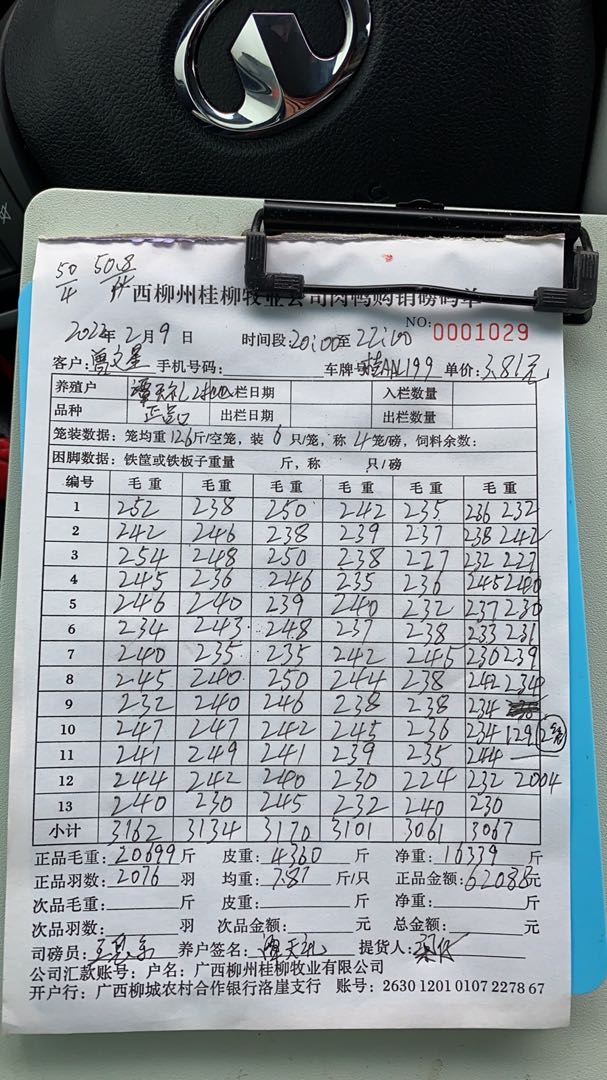 50/4 50.8/4
广西柳州桂柳牧业公司肉鸭购销磅码单
NO: 0001029
2022年2月9日 时间段:20:00至22:00
客户: 手机号码: 车牌:桂AN199 单价:3.81元
养殖户 入栏日期 入栏数量
品种 正品 出栏日期 出栏数量
笼装数据:笼均重12.6斤/空笼,装6只/笼,称4笼/磅,饲料余数:
困脚数据:铁筐或铁板子重量 斤,称 只/磅
编号 毛重 毛重 毛重 毛重 毛重 毛重
1 252 238 250 242 235 236 232
2 242 246 238 239 237 238 242
3 254 248 250 238 227 232 227
4 245 236 246 235 236 245 240
5 246 240 239 240 232 237 230
6 234 243 248 237 238 233 231
7 240 235 235 242 245 230 239
8 245 240 250 244 238 242 234
9 232 240 246 238 238 234
10 247 247 242 245 236 234 129 2笼
11 241 249 241 239 235 244
12 244 242 240 230 224 232 2004
13 240 230 245 232 240 230
小计 3162 3134 3170 3101 3061 3067
正品毛重:20699斤 皮重:4360斤 净重:16339斤
正品羽数:2076羽 均重:7.87斤/只 正品金额:62088元
次品毛重: 斤 皮重: 斤 净重: 斤
次品羽数: 羽 次品金额: 元 总金额: 元
司磅员: 养户签名: 提货人:
公司汇款账号:户名:广西柳州桂柳牧业有限公司
开户行:广西柳城农村合作银行洛崖支行 账号:2630 1201 0107 2278 67